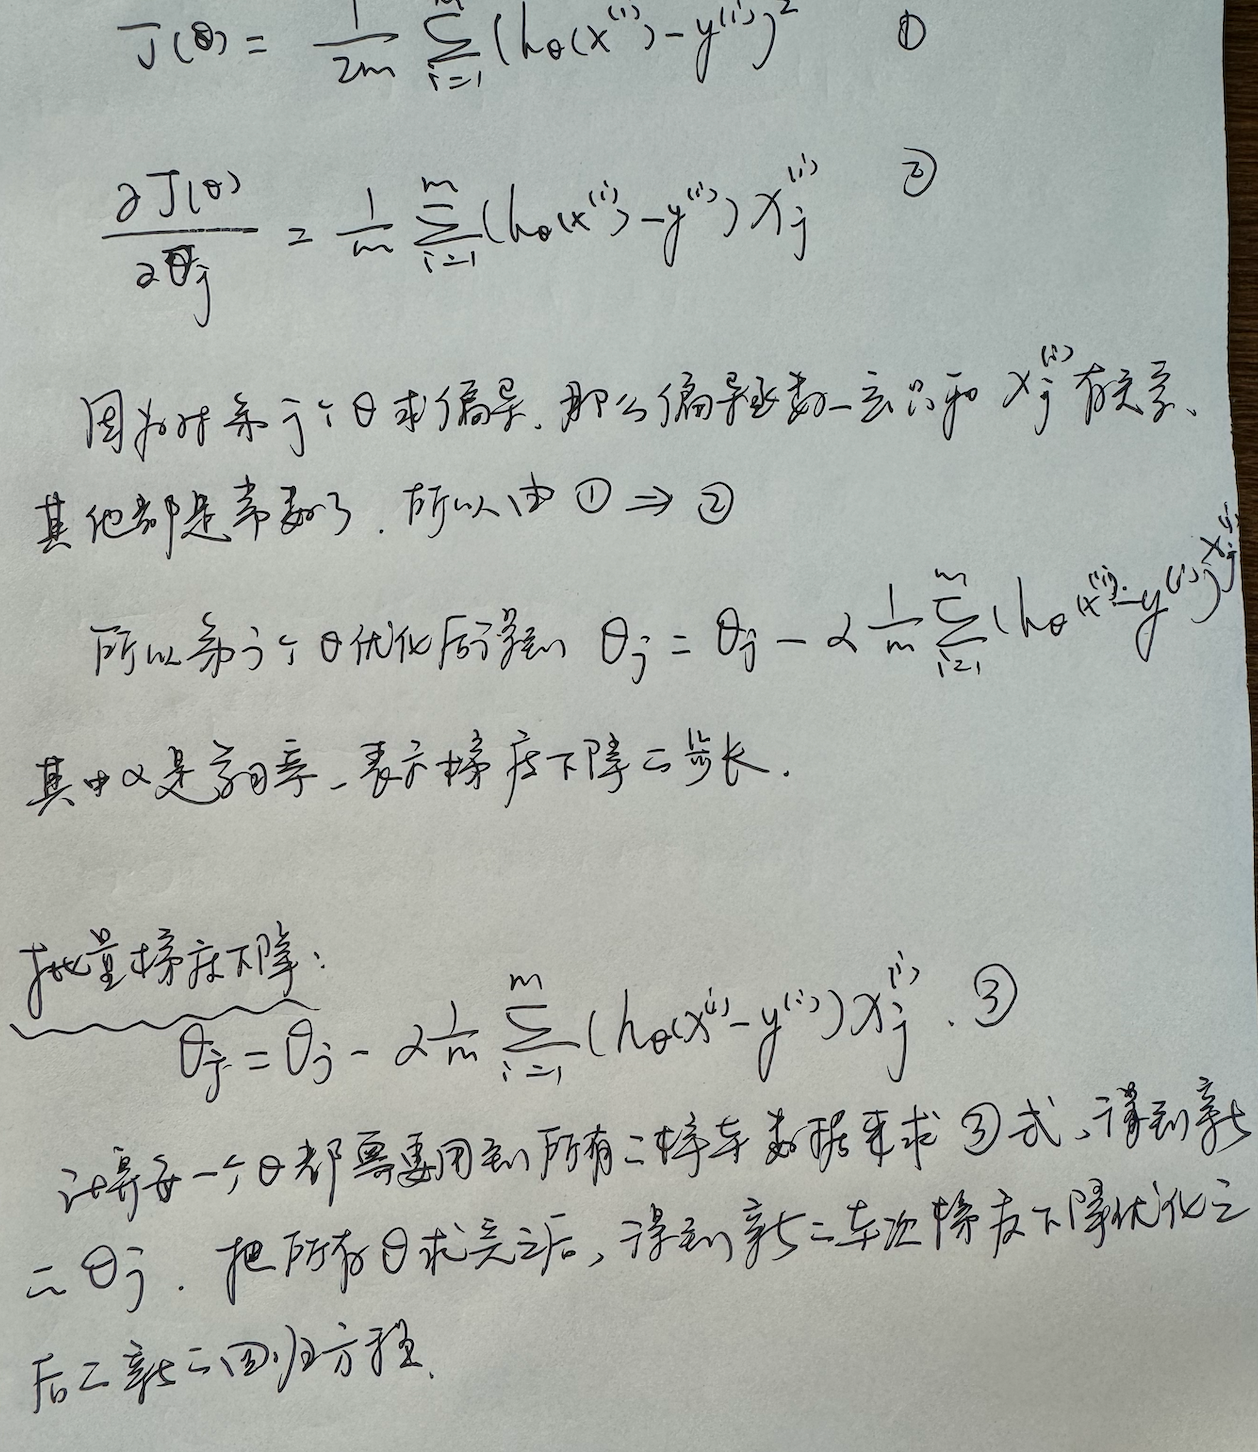 J(θ) = 1/2m Σ_{i=1}^{m} (hθ(x^(i)) - y^(i))² ①
∂J(θ)/∂θj = 1/m Σ_{i=1}^{m} (hθ(x^(i)) - y^(i)) xj^(i) ②
因为对第j个θ求偏导、那么偏导函数一定只和 xj^(i) 有关系、
其他都是常数了. 所以由 ① ⇒ ②
所以第j个θ优化后得到 θj = θj - α 1/m Σ_{i=1}^{m} (hθ(x^(i)) - y^(i)) xj^(i)
其中α是学习率、表示梯度下降的步长.
批量梯度下降:
θj = θj - α 1/m Σ_{i=1}^{m} (hθ(x^(i)) - y^(i)) xj^(i) . ③
计算每一个θ都需要用到所有的样本数据来求③式、得到新
的θj. 把所有θ求完之后, 得到新的本次梯度下降优化之
后的新的回归方程.